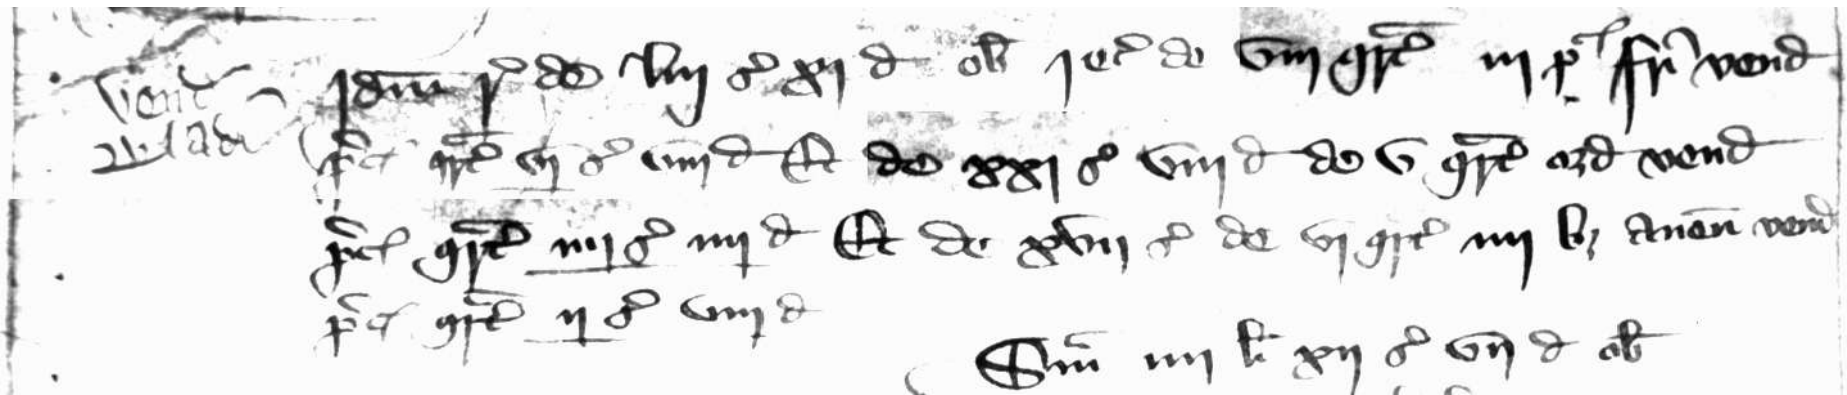 Vend Idm r' de liij s' xj d ob' rec' de viij qrt' iij p' fr' vend
bladi p'c' qrt' vj s' viij d Et de xxj s' viij d de v qrt' ord vend
p'c' qrt' iiij s' iiij d Et de xvij s' de vj qrt' iiij bz auen vend
p'c' qrt' ij s' viij d
Sm iiij li xij s' vij d ob'